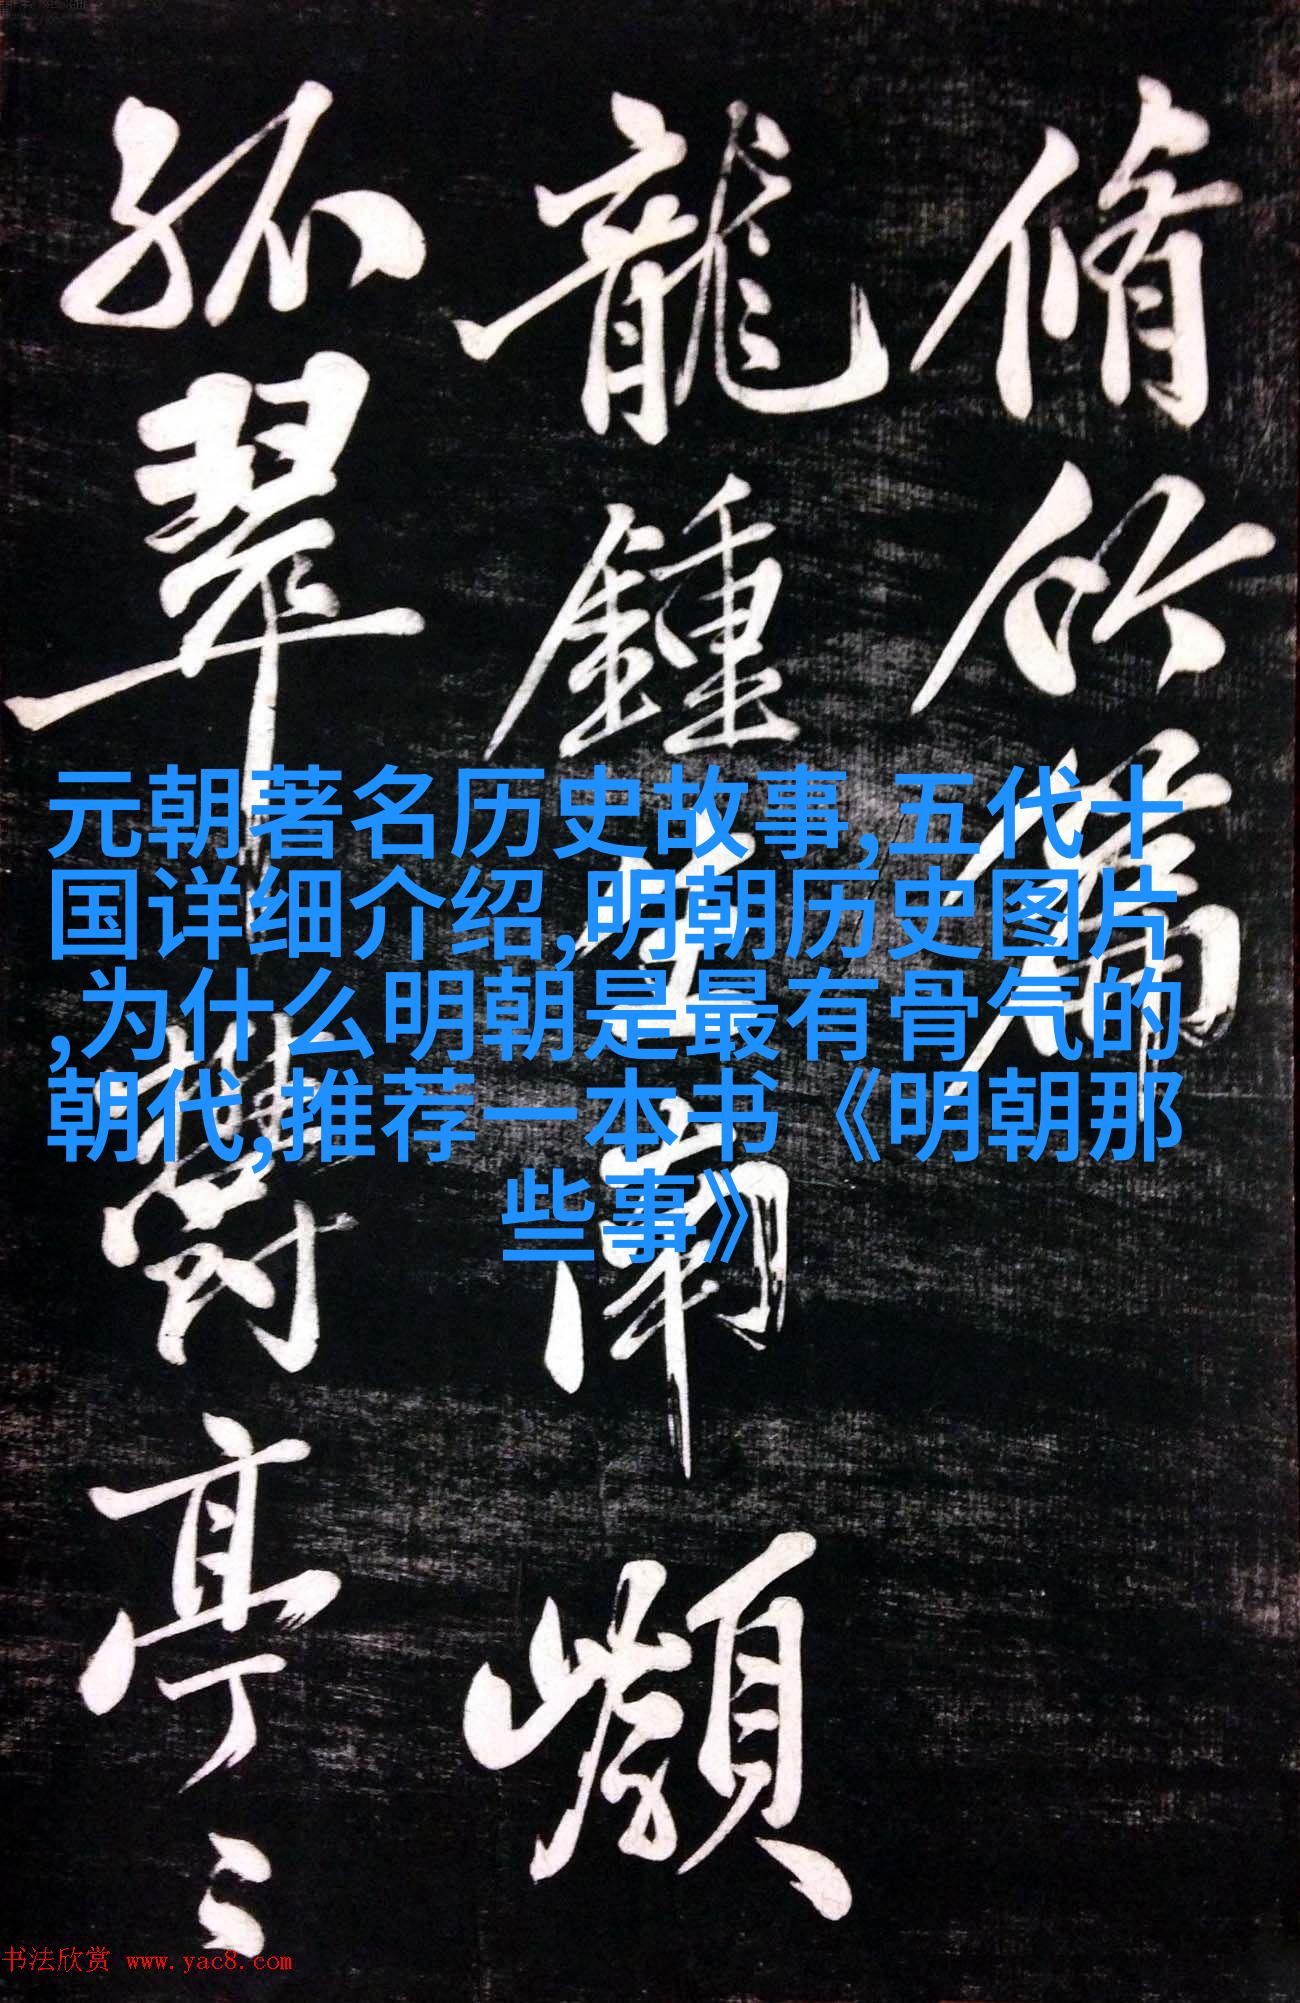 脩竹篇
龍鍾生南
孤翠鬱亭〻
元朝著名历史故事,五代十
国详细介绍,明朝历史图片
,为什么明朝是最有骨气的
朝代,推荐一本书《明朝那
些事》
书法欣赏 www.yac8.com